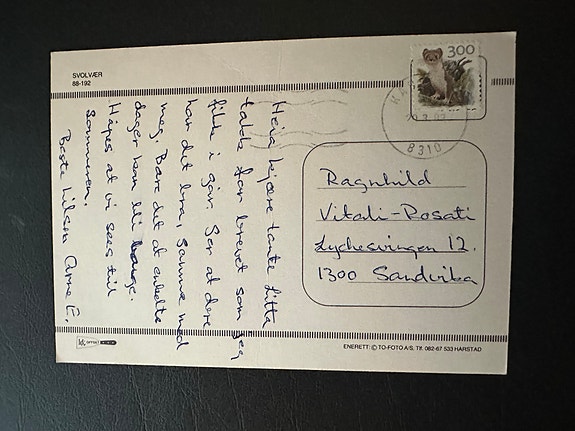 SVOLVÆR
88-192
Heia kjære tante Litta
takk for brevet som jeg
fikk i går. Ser at dere
har det bra, samme med
meg. Bare det at enkelte
dager kan bli lange.
Håpes at vi sees till
sommeren.
Beste hilsen Arne E.
300
8310
Ragnhild
Vitali-Rosati
Lychesvingen 12.
1300 Sandvika
ENERETT: © TO-FOTO A/S. Tlf. 082-67 533 HARSTAD